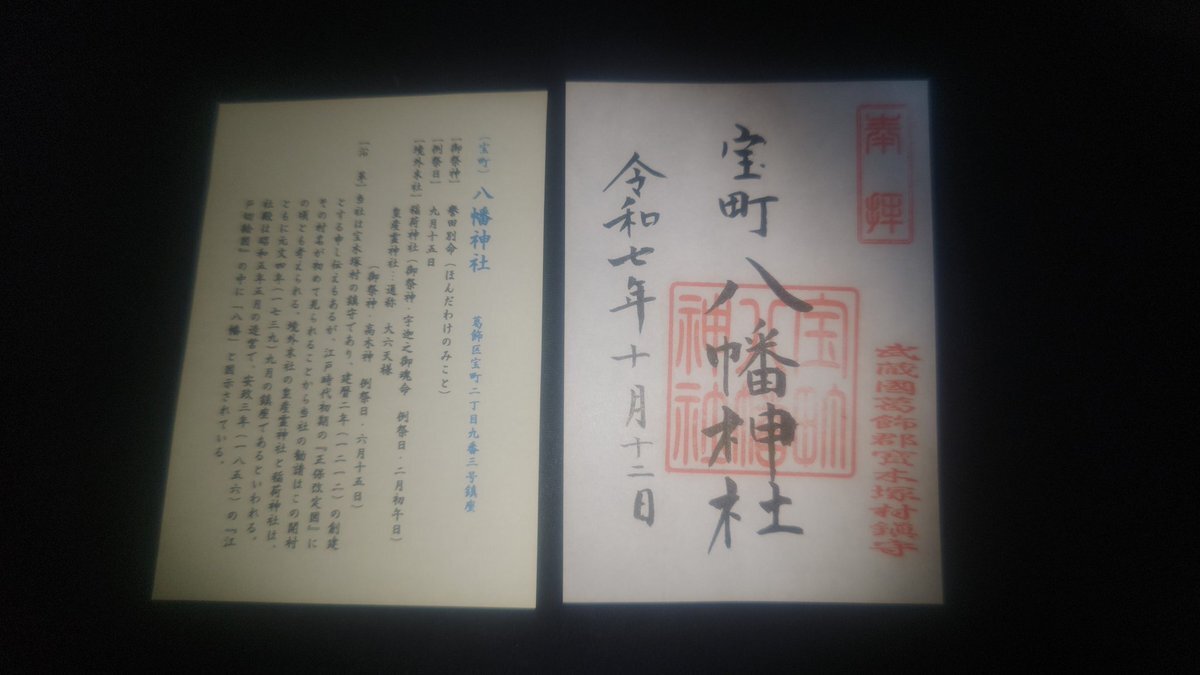 奉拝
武蔵國葛飾郡寳木塚村鎮守
宝町 八幡神社
宝町八幡神社
令和七年 十月十二日
〔宝町〕 八幡神社 葛飾区宝町二丁目九番三号鎮座
【御祭神】 誉田別命（ほんだわけのみこと）
【例祭日】 九月十五日
【境外末社】 稲荷神社（御祭神・宇迦之御魂命 例祭日・二月初午日）
皇産霊神社‥通称 大六天様
（御祭神・高木神 例祭日・六月十五日）
【沿 革】 当社は宝木塚村の鎮守であり、建暦二年（一二一二）の創建
とする申し伝えもあるが、江戸時代初期の『正保改定図』に
その村名が初めて見られることから当社の勧請はこの開村
の頃とも考えられる。境外末社の皇産霊神社と稲荷神社は、
ともに元文四年（一七三九）九月の鎮座であるといわれる。
社殿は昭和五年五月の造営で、安政三年（一八五六）の『江
戸切絵図』の中に「八幡」と図示されている。